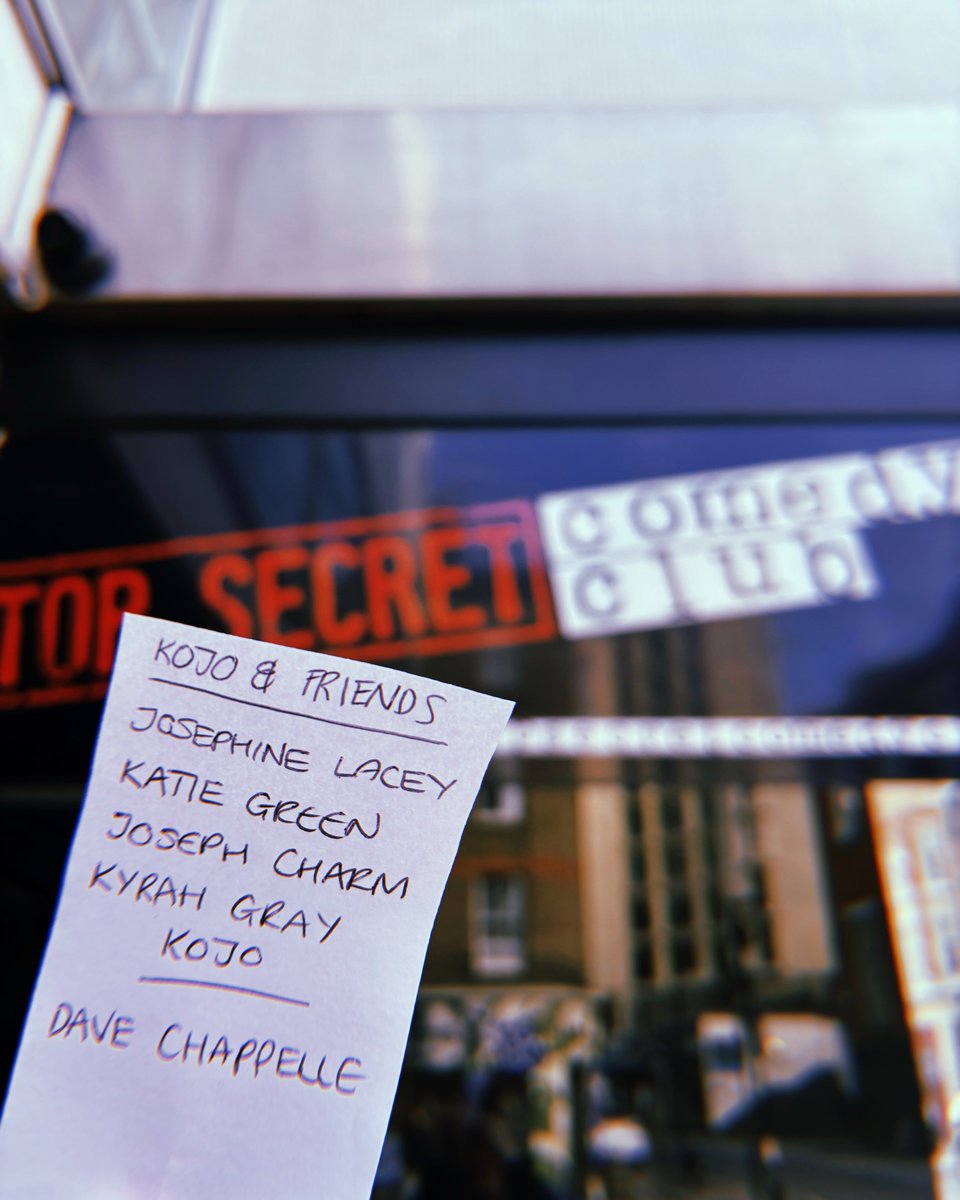 TOP SECRET comedy
club
KOJO & FRIENDS
JOSEPHINE LACEY
KATIE GREEN
JOSEPH CHARM
KYRAH GRAY
KOJO
DAVE CHAPPELLE